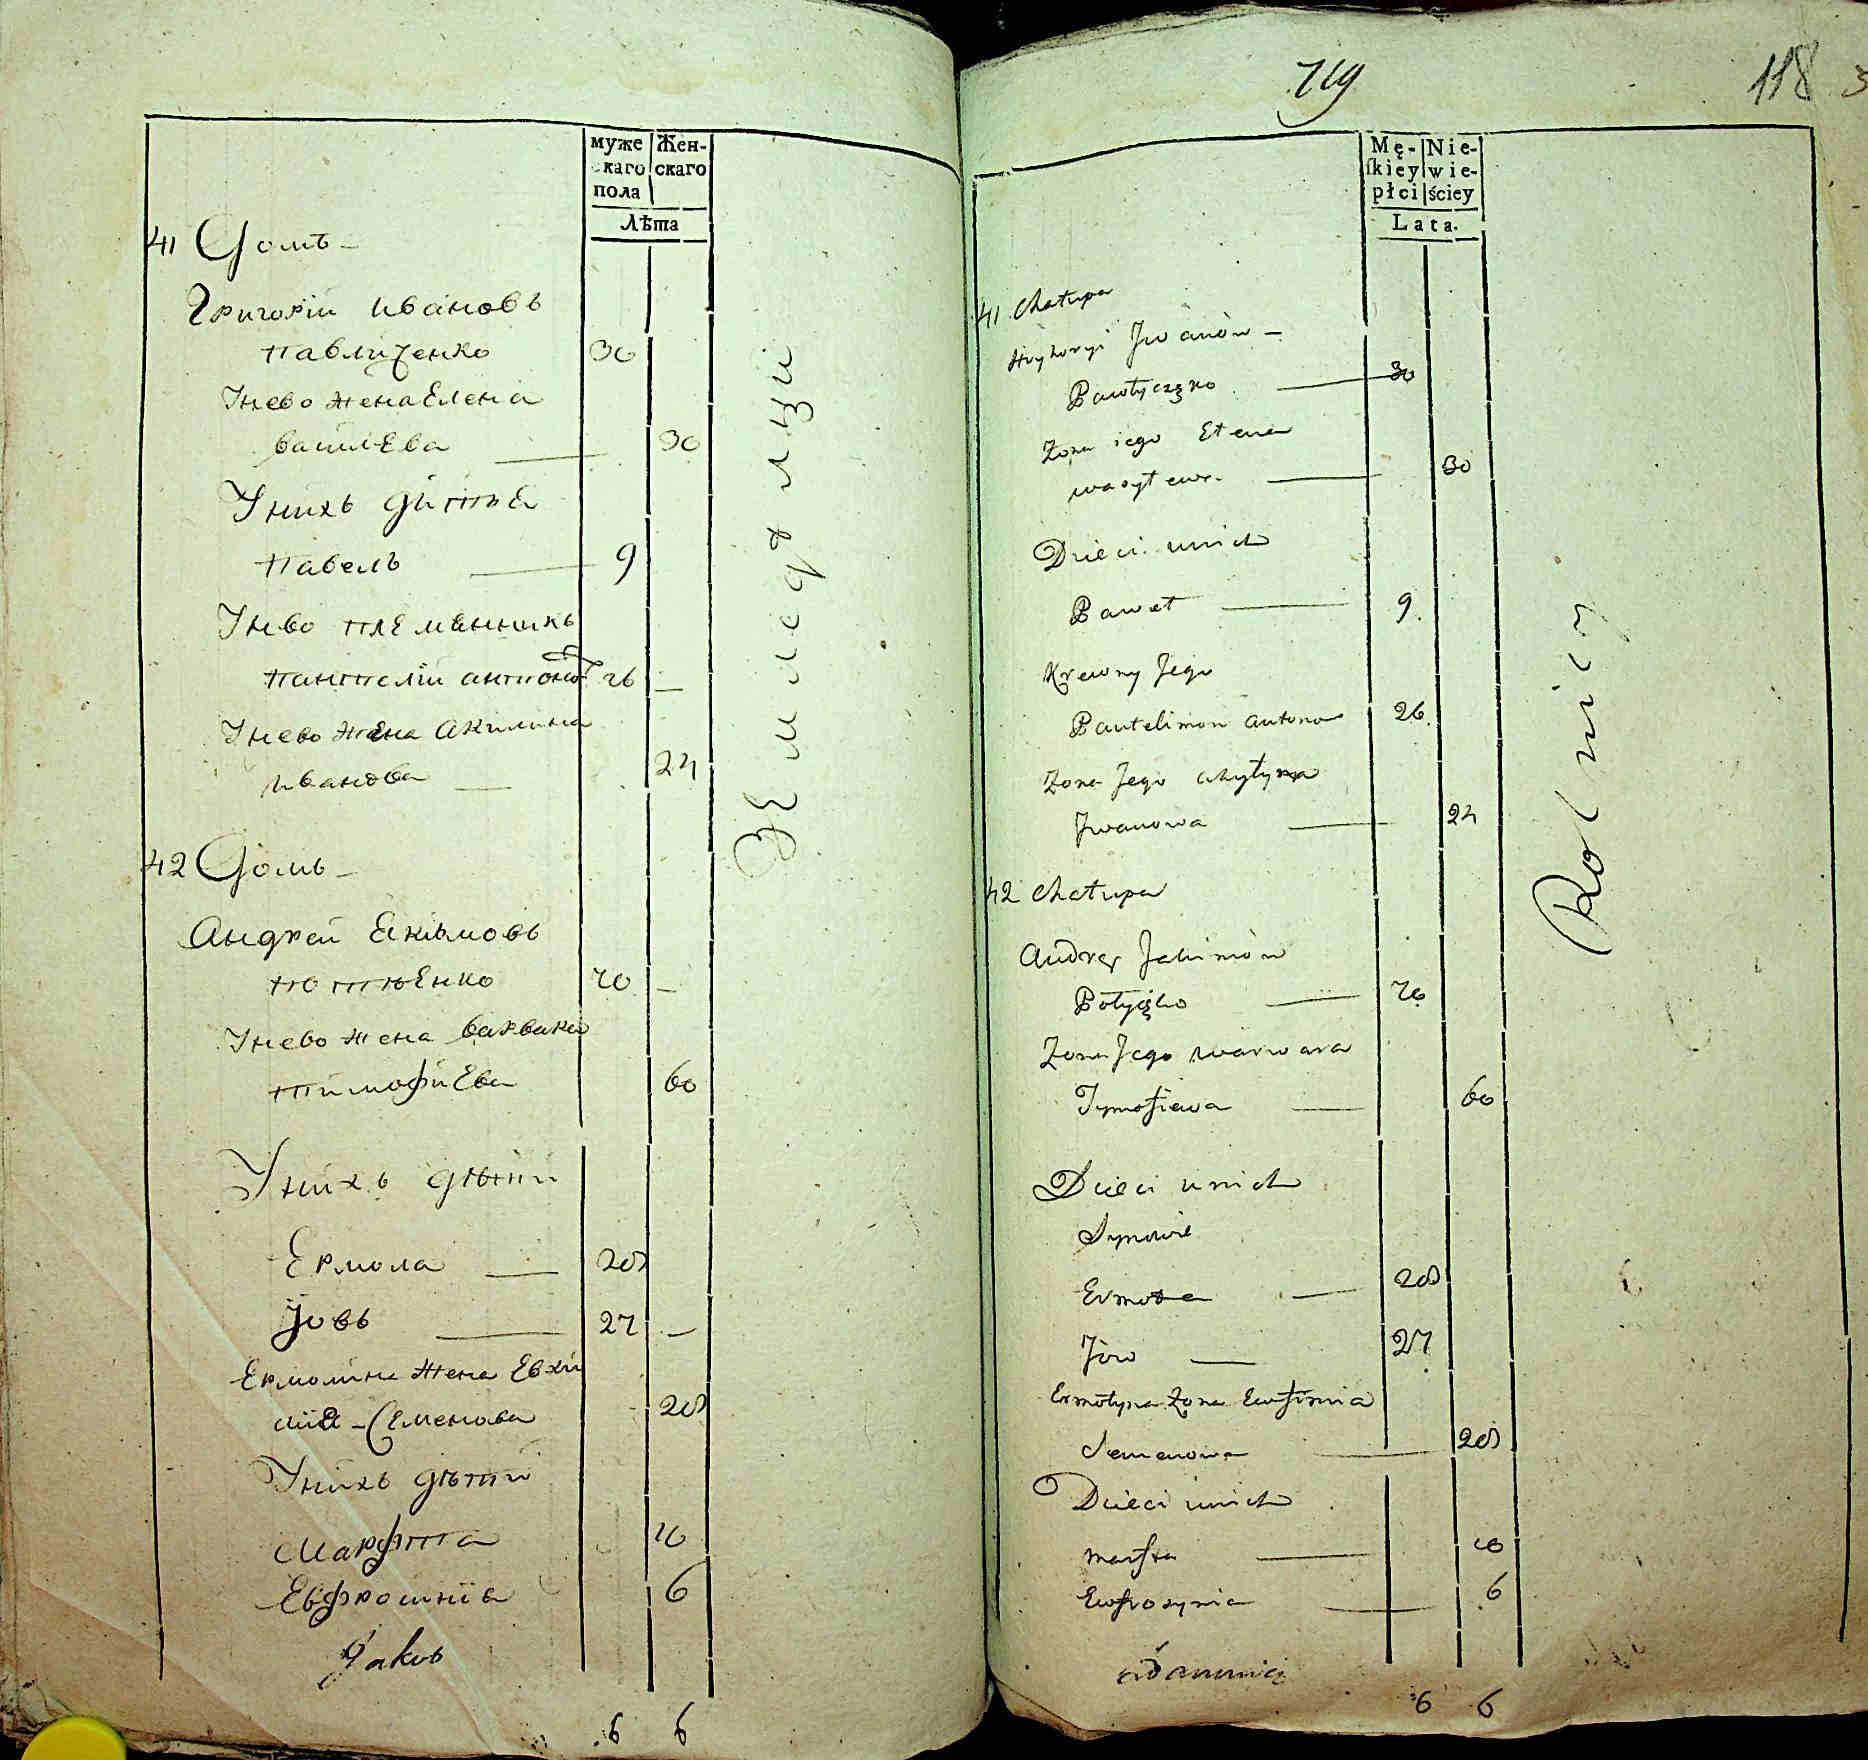 мужескаго пола
Женскаго
Лѣта
41 Домъ
Григорій Ивановъ
Павличенко 30
У нево жена Елена
Василева 30
У нихъ дити
Павелъ 9
У нево племянникъ
Пантелій Антонов 26
У нево жена Акилина
Иванова 24
42 Домъ
Андрей Екимовъ
70
У нево жена Варвара
Тимофиева 60
У нихъ дѣти
Ермола 28
Іовъ 27
Ермолина жена Евхи
мия Семенова 28
У нихъ дѣти
Марфта 10
Евфросинія 6
Jakub
6 6
719
118
Męſkiey płci
Niewieściey
Lata.
41 Chałupa
Hryhoryi Jwanòw
Pawłyczęko 30
Zona iego Elena
Wasylewa 30
Dzieci unich
Paweł 9
Krewny Jego
Pantelimon Antonow 26
Zona Jego Akyłyna
Jwanowa 24
42 Chałupa
Andrey Jakimòw
70
Zona Jego Warwara
Tymofiewa 60
Dzieci unich
Synowie
Ermoła 28
Jow 27
Ermołyna Zona Ewfimia
Semenowa 28
Dzieci unich
Marfta 10
Ewfrosynia 6
6 6
Rolnicy